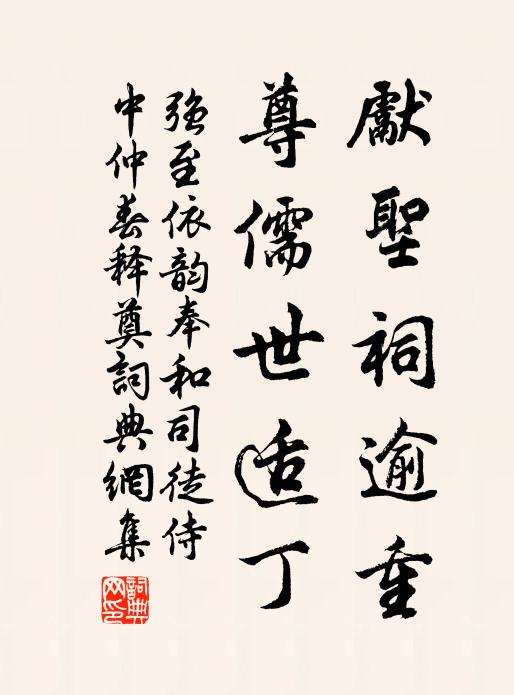 獻聖祠逾重
尊儒世适丁
强至依韵奉和司徒侍
中仲春释奠詞典網集
詞典網印